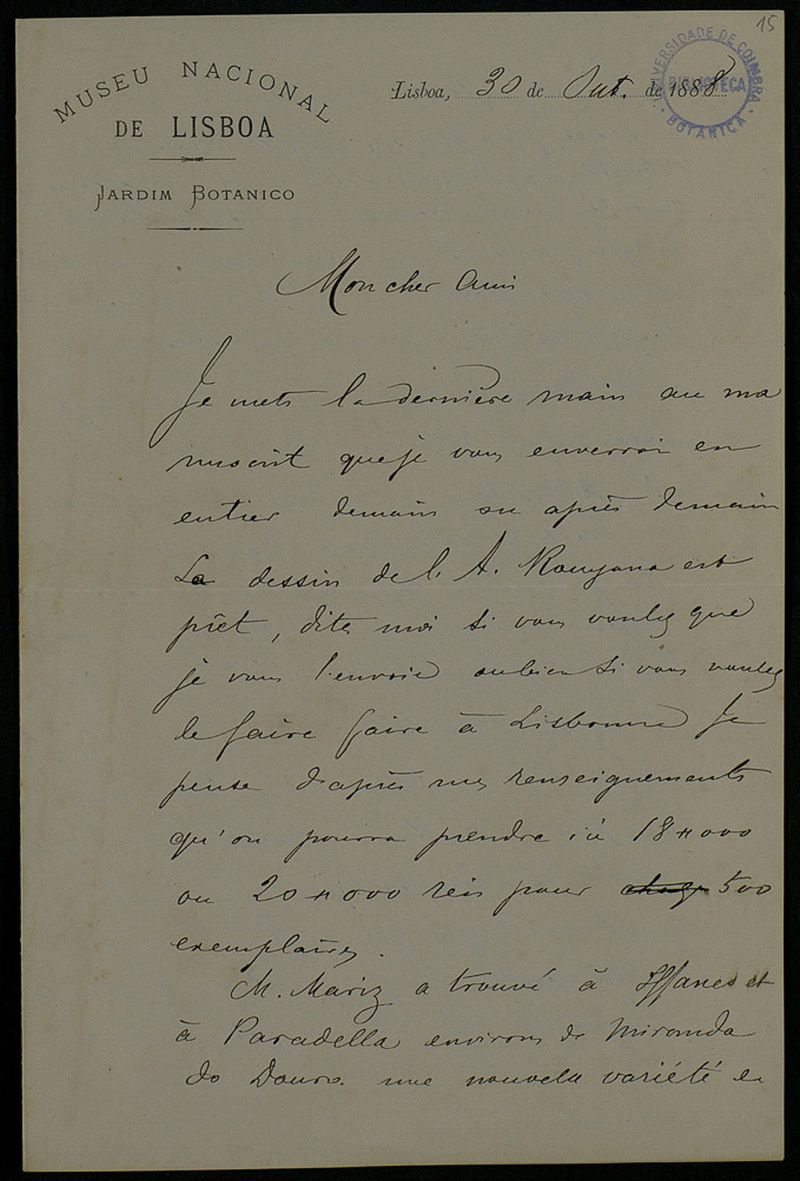 15
MUSEU NACIONAL
DE LISBOA
JARDIM BOTANICO
Lisboa, 30 de Out. de 1888
UNIVERSIDADE DE COIMBRA
BIBLIOTECA
BOTANICA
Mon cher Ami
Je mets la dernière main au ma
nuscrit que je vous enverrai en
entier demain ou après demain
La dessin de l'A. Rouyana est
prêt, dites moi si vous voulez que
je vous l'envoie ou bien si vous voulez
le faire faire à Lisbonne Je
pense d'après mes renseignements
qu'on pourra prendre ici 18#000
ou 20#000 reis pour 500
exemplaires.
M. Mariz a trouvé à Iffanes et
à Paradella environs de Miranda
do Douro une nouvelle variété e